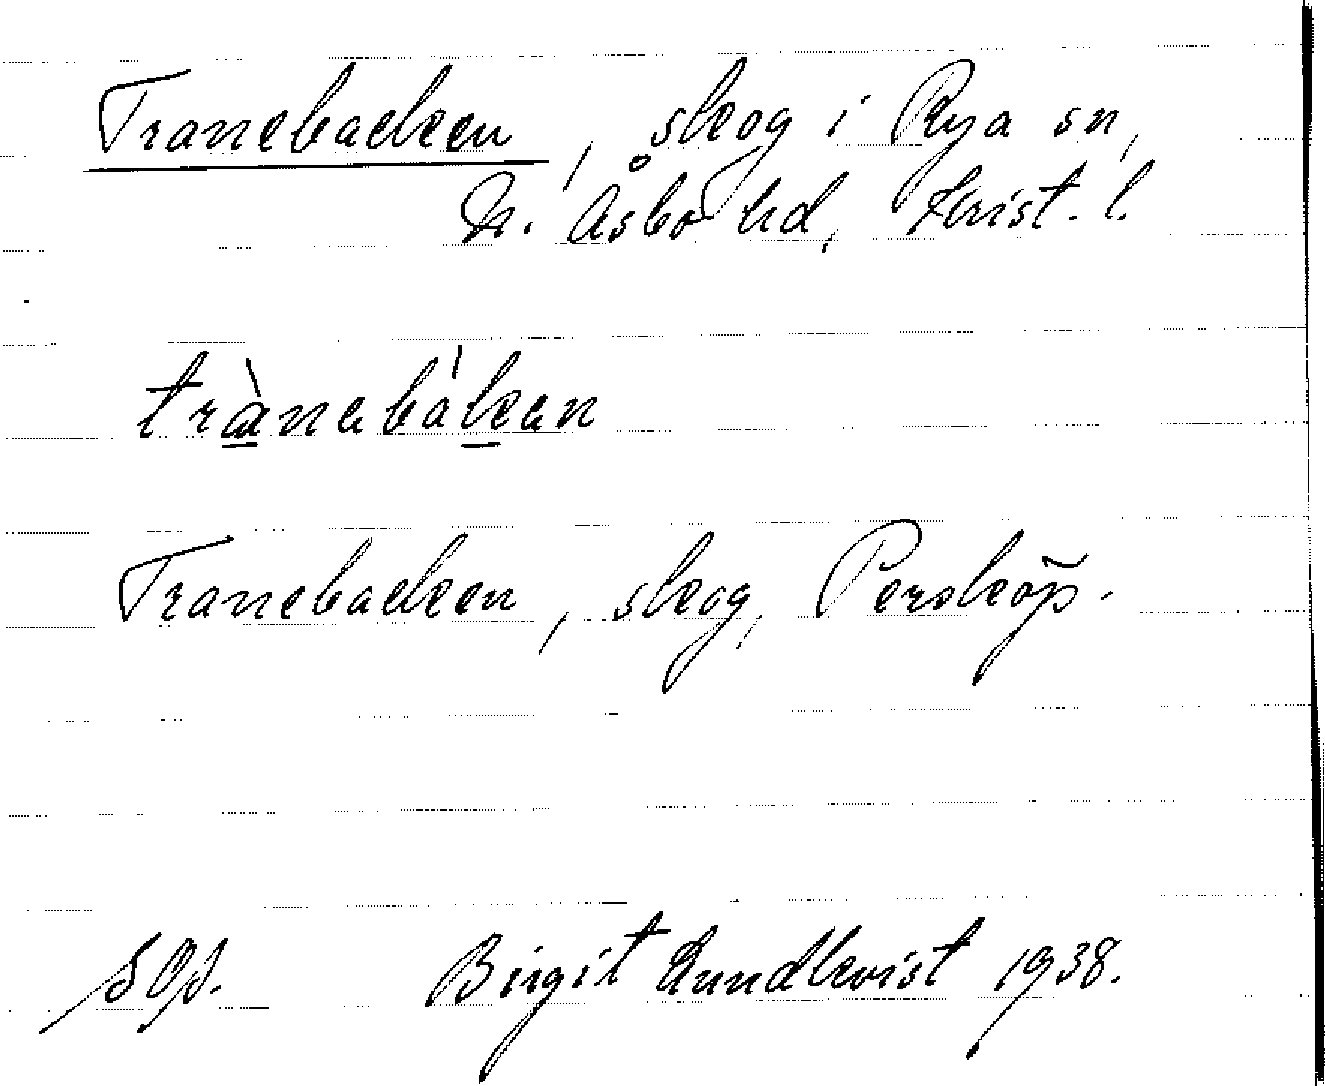 Tranebacken, skog i Rya sn,
N. Åsbo hd, Krist. l.
trànabákan
Tranebacken, skog, Persköp.
SOp. Birgit Lundkvist 1938.